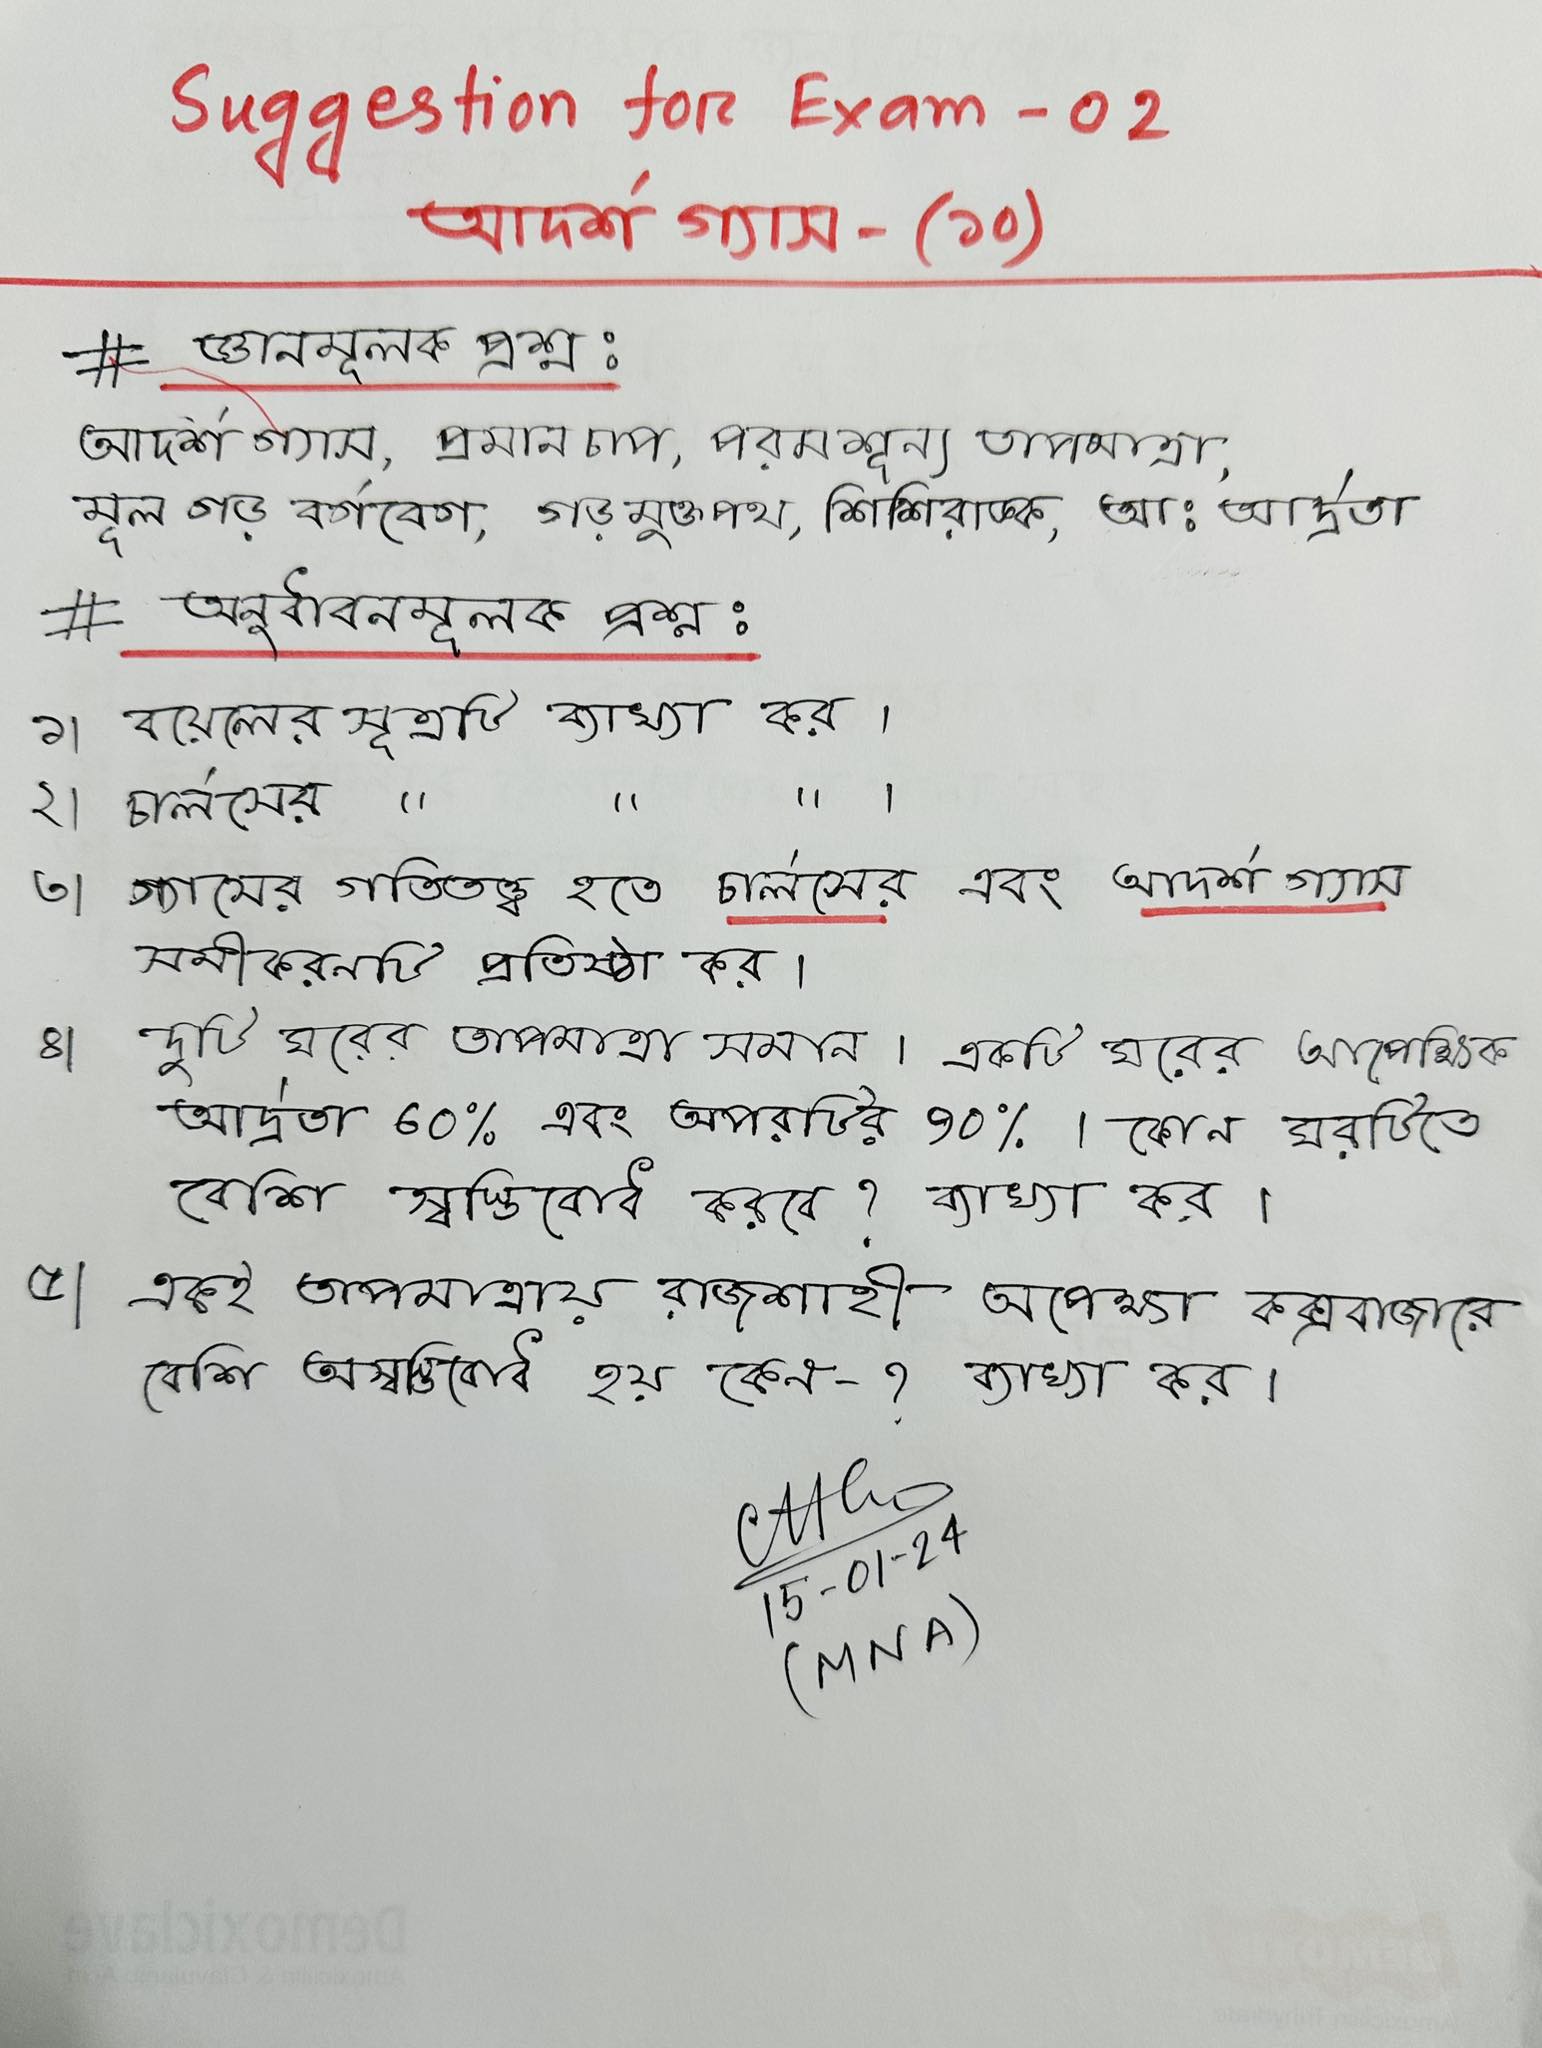 Suggestion for Exam - 02
আদর্শ গ্যাস - (১০)
# জ্ঞানমূলক প্রশ্ন :
আদর্শ গ্যাস, প্রমান চাপ, পরমশূন্য তাপমাত্রা,
মূল গড় বর্গবেগ, গড় মুক্তপথ, শিশিরাঙ্ক, আঃ আর্দ্রতা
# অনুধাবনমূলক প্রশ্ন :
১। বয়েলের সূত্রটি ব্যাখ্যা কর ।
২। চার্লসের " " " ।
৩। গ্যাসের গতিতত্ত্ব হতে চার্লসের এবং আদর্শ গ্যাস
সমীকরনটি প্রতিষ্ঠা কর ।
৪। দুটি ঘরের তাপমাত্রা সমান । একটি ঘরের আপেক্ষিক
আর্দ্রতা 60% এবং অপরটির 90% । কোন ঘরটিতে
বেশি স্বস্তিবোধ করবে ? ব্যাখ্যা কর ।
৫। একই তাপমাত্রায় রাজশাহী অপেক্ষা কক্সবাজারে
বেশি অস্বস্তিবোধ হয় কেন - ? ব্যাখ্যা কর ।
15-01-24
(MNA)
Demoxiclave